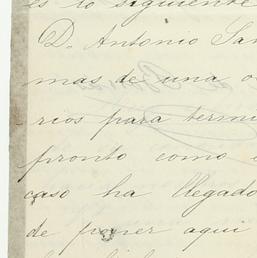 es lo siguiente
D. Antonio San
mas de una o
rios para termi
pronto como
caso ha llegado
de poner aqui